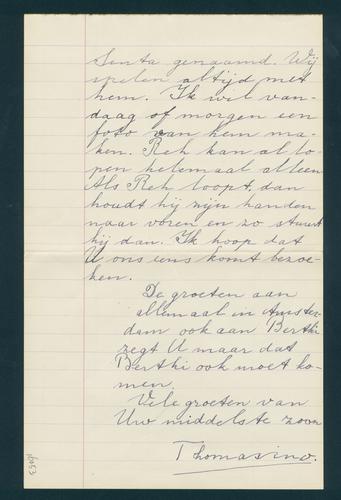 Senta genaamd. Wij
spelen altijd met
hem. Ik wil van-
daag of morgen een
foto van hem ma-
ken. Reh kan al lo-
pen helemaal alleen
Als Reh loopt, dan
houdt hij zijn handen
naar voren en zo stuurt
hij dan. Ik hoop dat
U ons eens komt bezoe-
ken.
De groeten aan
allemaal in Amster-
dam ook aan Berthi
zegt U maar dat
Berthi ook moet ko-
men.
Vele groeten van
Uw middelste zoon
Thomasino.